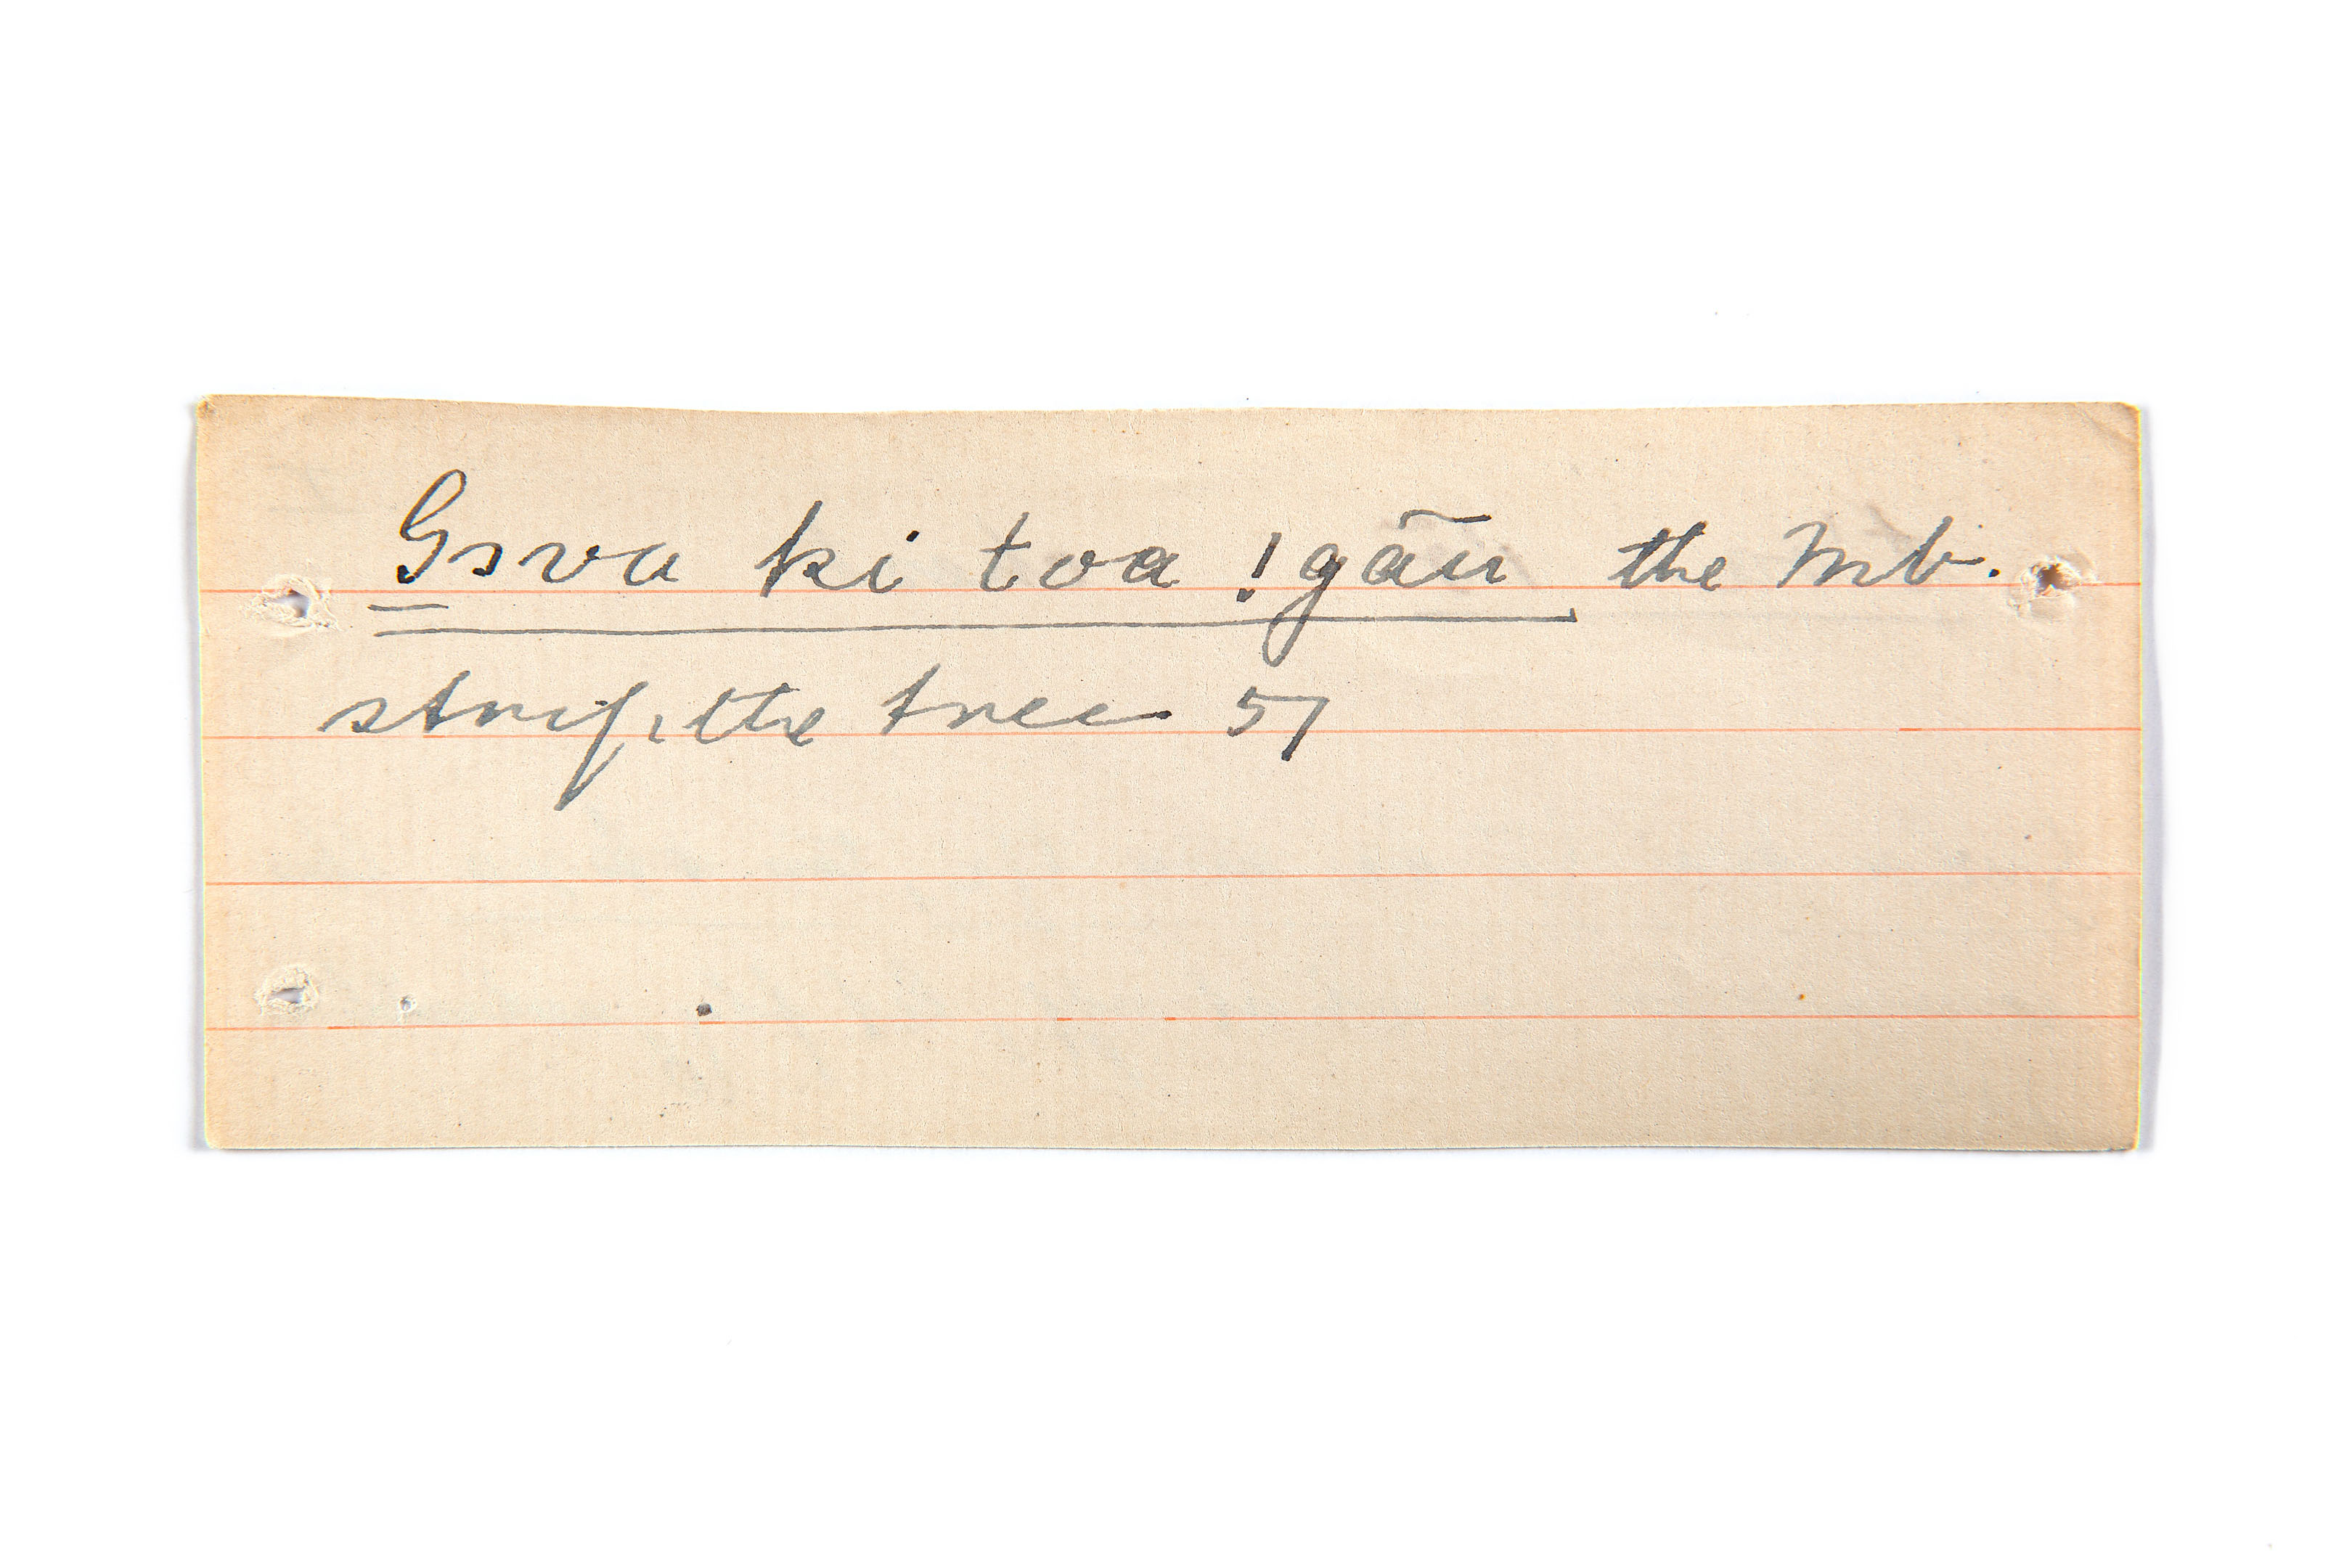 Gɔva ki toa !gāu the Mb.
strip the tree 57